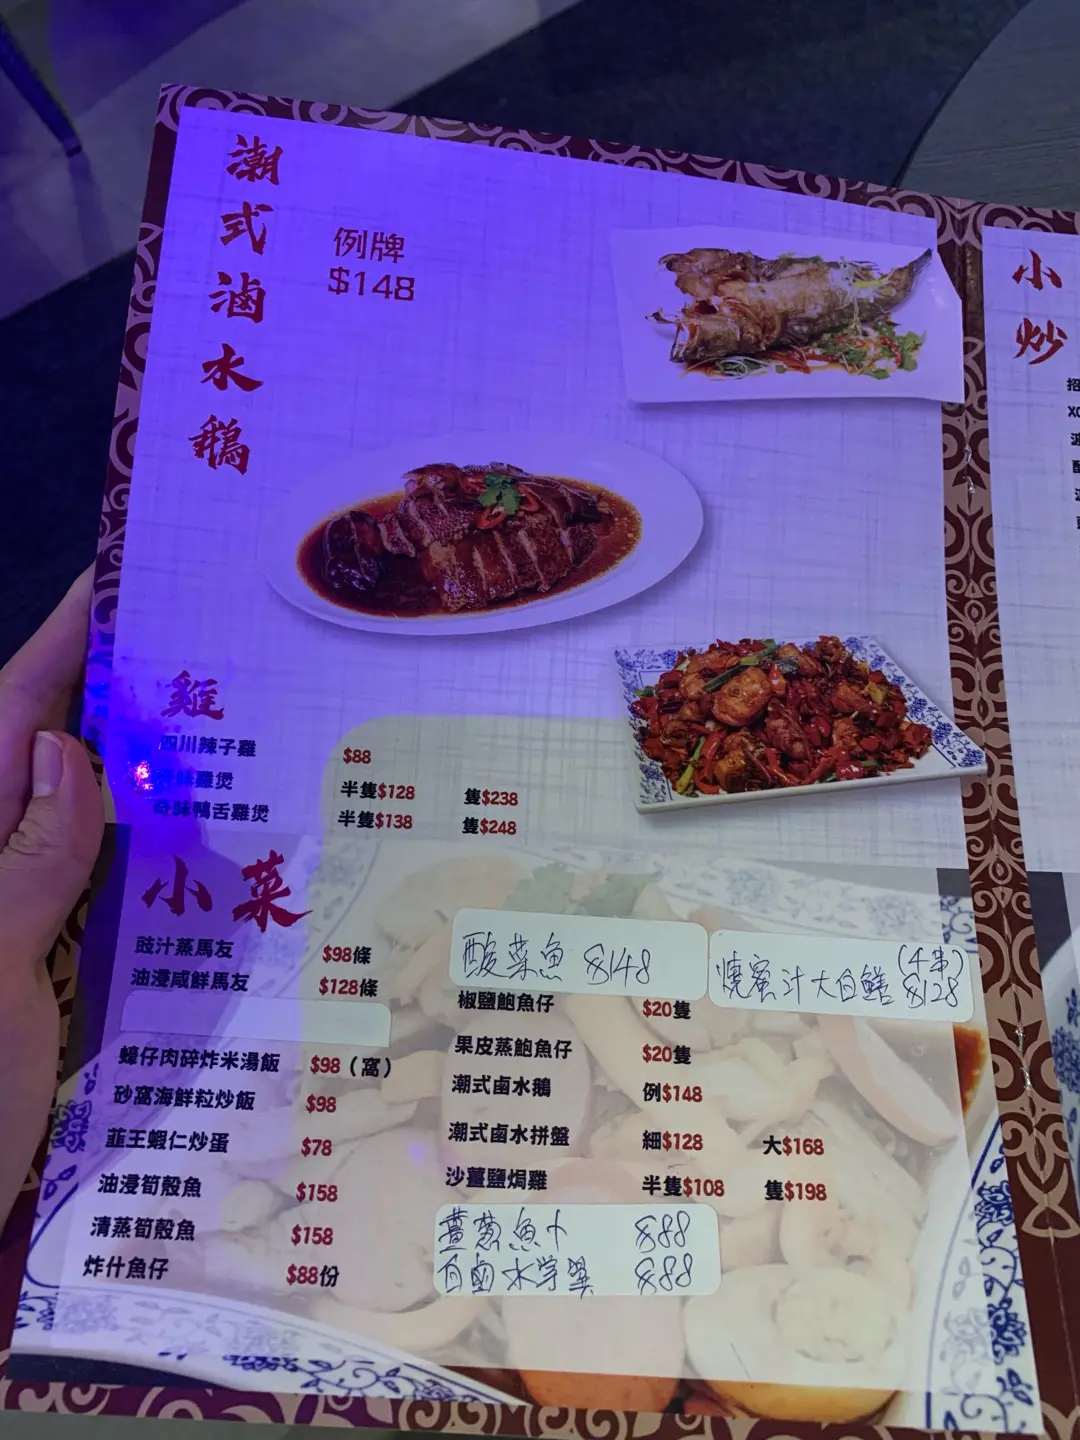 潮式滷水鵝
例牌
$148
雞
四川辣子雞 $88
雞煲 半隻$128 隻$238
奇味鴨舌雞煲 半隻$138 隻$248
小菜
豉汁蒸馬友 $98條
油浸咸鮮馬友 $128條
蠔仔肉碎炸米湯飯 $98（窩）
砂窩海鮮粒炒飯 $98
韮王蝦仁炒蛋 $78
油浸筍殼魚 $158
清蒸筍殼魚 $158
炸什魚仔 $88份
酸菜魚 $148
燒蜜汁大白鱔 (4串) $128
椒鹽鮑魚仔 $20隻
果皮蒸鮑魚仔 $20隻
潮式鹵水鵝 例$148
潮式鹵水拼盤 細$128 大$168
沙薑鹽焗雞 半隻$108 隻$198
薑蔥魚卜 $88
自鹵水掌翼 $88
小炒
招
XO